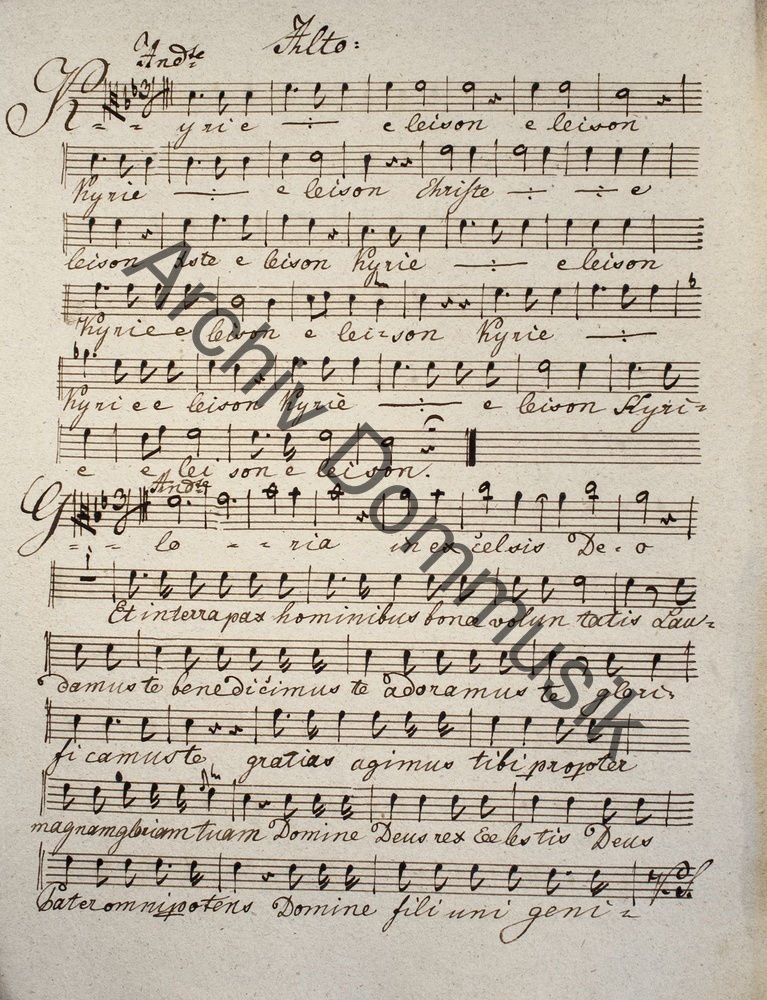 Alto:
Andte
Kyrie e leison e leison
Kyrie e leison Christe e
leison Xste e leison Kyrie e leison
Kyrie e leison e lei-son Kyrie
Kyri e e leison Kyrie e leison Kyri-
e e lei son e leison.
Andte
Glo - - ria in ex celsis De-o
1
Et in terra pax hominibus bonae volun tatis Lau-
damus te benedicimus te adoramus te glori-
fi camus te gratias agimus tibi propter
magnam gloriam tuam Domine Deus rex Coelestis Deus
Pater omnipotens Domine fili uni geni -
Archiv Dommusik